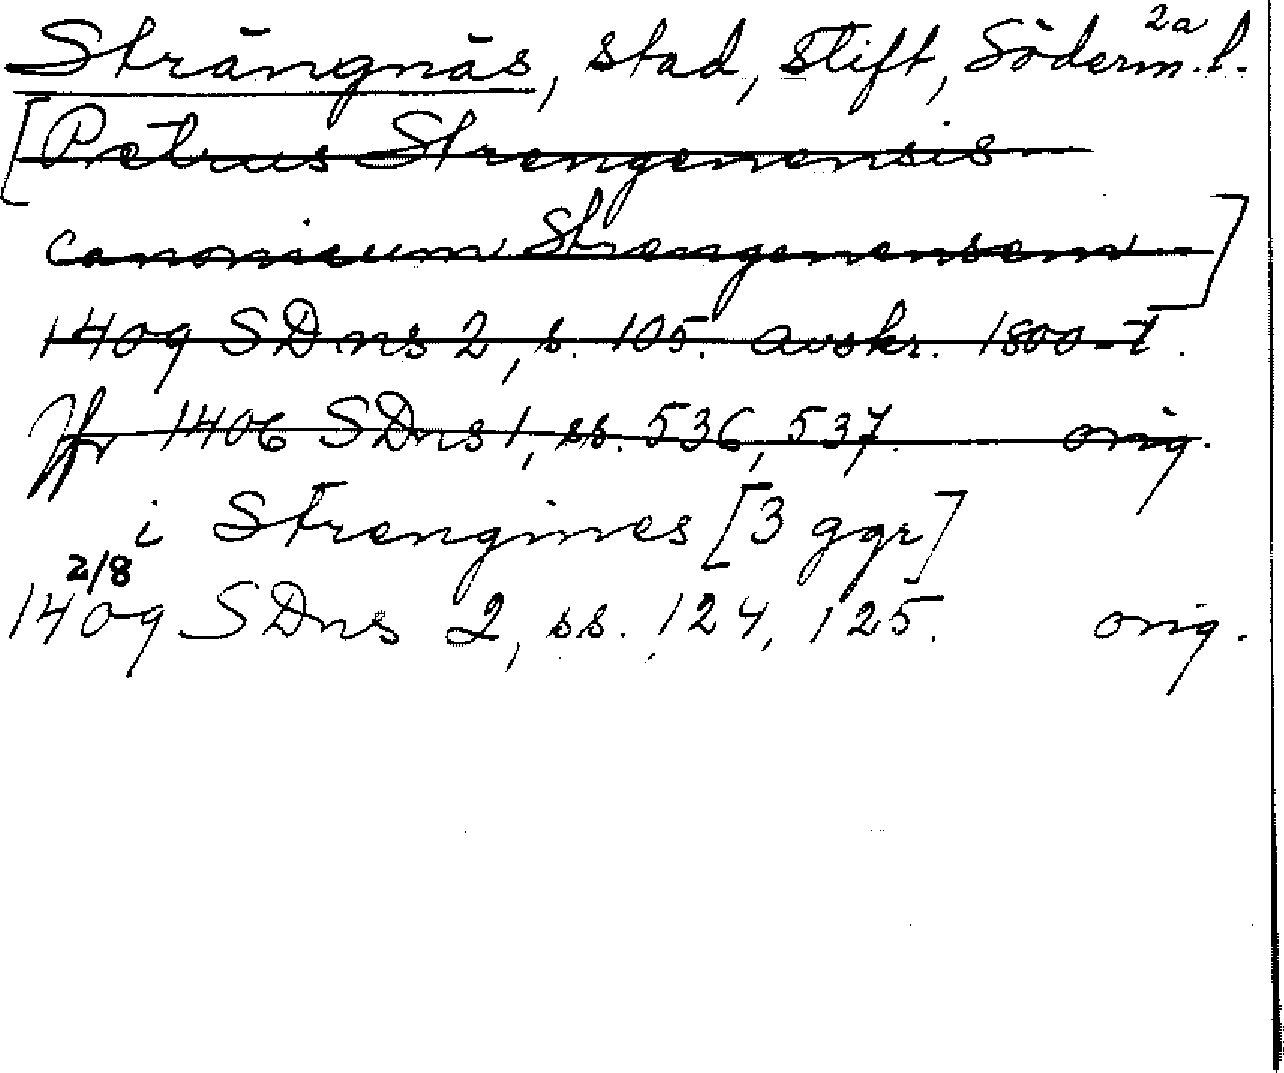 2a
Strängnäs, stad, stift, Söderm. l.
[Petrus Strengenensis
canonicum Strengenensem]
1409 SDns 2, s. 105. avskr. 1800-t.
Jfr 1406 SDns 1, ss. 536, 537. orig.
i Strengines [3 ggr]
2/8
1409 SDns 2, ss. 124, 125. orig.